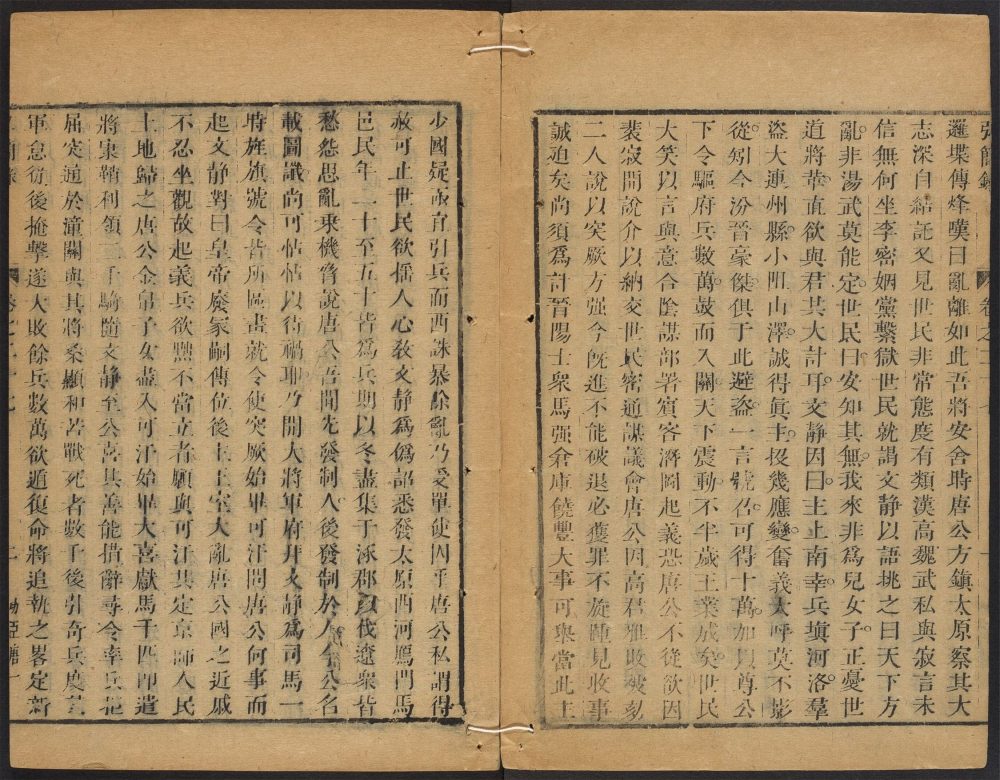 弘簡錄 卷之二十七
邏堞傳烽嘆曰亂離如此吾將安舍時唐公方鎮太原察其大
志深自結託又見世民非常態度有類漢高魏武私與寂言未
信無何坐李密姻黨繫獄世民就謁文静以語挑之曰天下方
亂非湯武莫能定世民曰安知其無我來非爲兒女子正憂世
道將革直欲與君共大計耳文静因曰主上南幸兵塡河洛羣
盜大連州縣小阻山澤誠得眞主投幾應變奮義大呼莫不影
從矧今汾晉豪傑俱于此避盜一言號召可得十萬加以尊公
下令驅府兵數萬鼓而入關天下震動不半歲王業成矣世民
大笑以言與意合陰謀部署賓客濟圖起義恐唐公不從欲因
裴寂開說介以納交世民密通謀議會唐公因高君雅敗被劾
二人說以突厥方强今旣進不能破退必獲罪不旋踵見收事
誠迫矣尚須爲計晉陽士衆馬强倉庫饒豐大事可舉當此主
少國疑亟宜引兵而西誅暴除亂乃受單使囚乎唐公私謂得
赦可止世民欲搖人心敎文静爲僞詔悉發太原西河鴈門馬
邑民年二十至五十皆爲兵期以冬盡集于涿郡以伐遼衆皆
愁怨思亂乘機脅說唐公吾聞先發制人後發制於人今公名
載圖讖尚可怙怙以待禍耶乃開大將軍府拜文静爲司馬一
時旌旗號令皆所區畫就令使突厥始畢可汗問唐公何事而
起文静對曰皇帝廢冢嗣傳位後主王室大亂唐公國之近戚
不忍坐觀故起義兵欲黜不當立者願與可汗共定京師人民
土地歸之唐公金帛子女盡入可汗始畢大喜獻馬千匹即遣
將康鞘利領二千騎隨文静至公喜其善能措辭尋令率兵拒
屈突通於潼關與其將桑顯和苦戰死者數千後引奇兵
軍怠從後掩擊遂大敗餘兵數萬欲遁復命將追執之畧定新